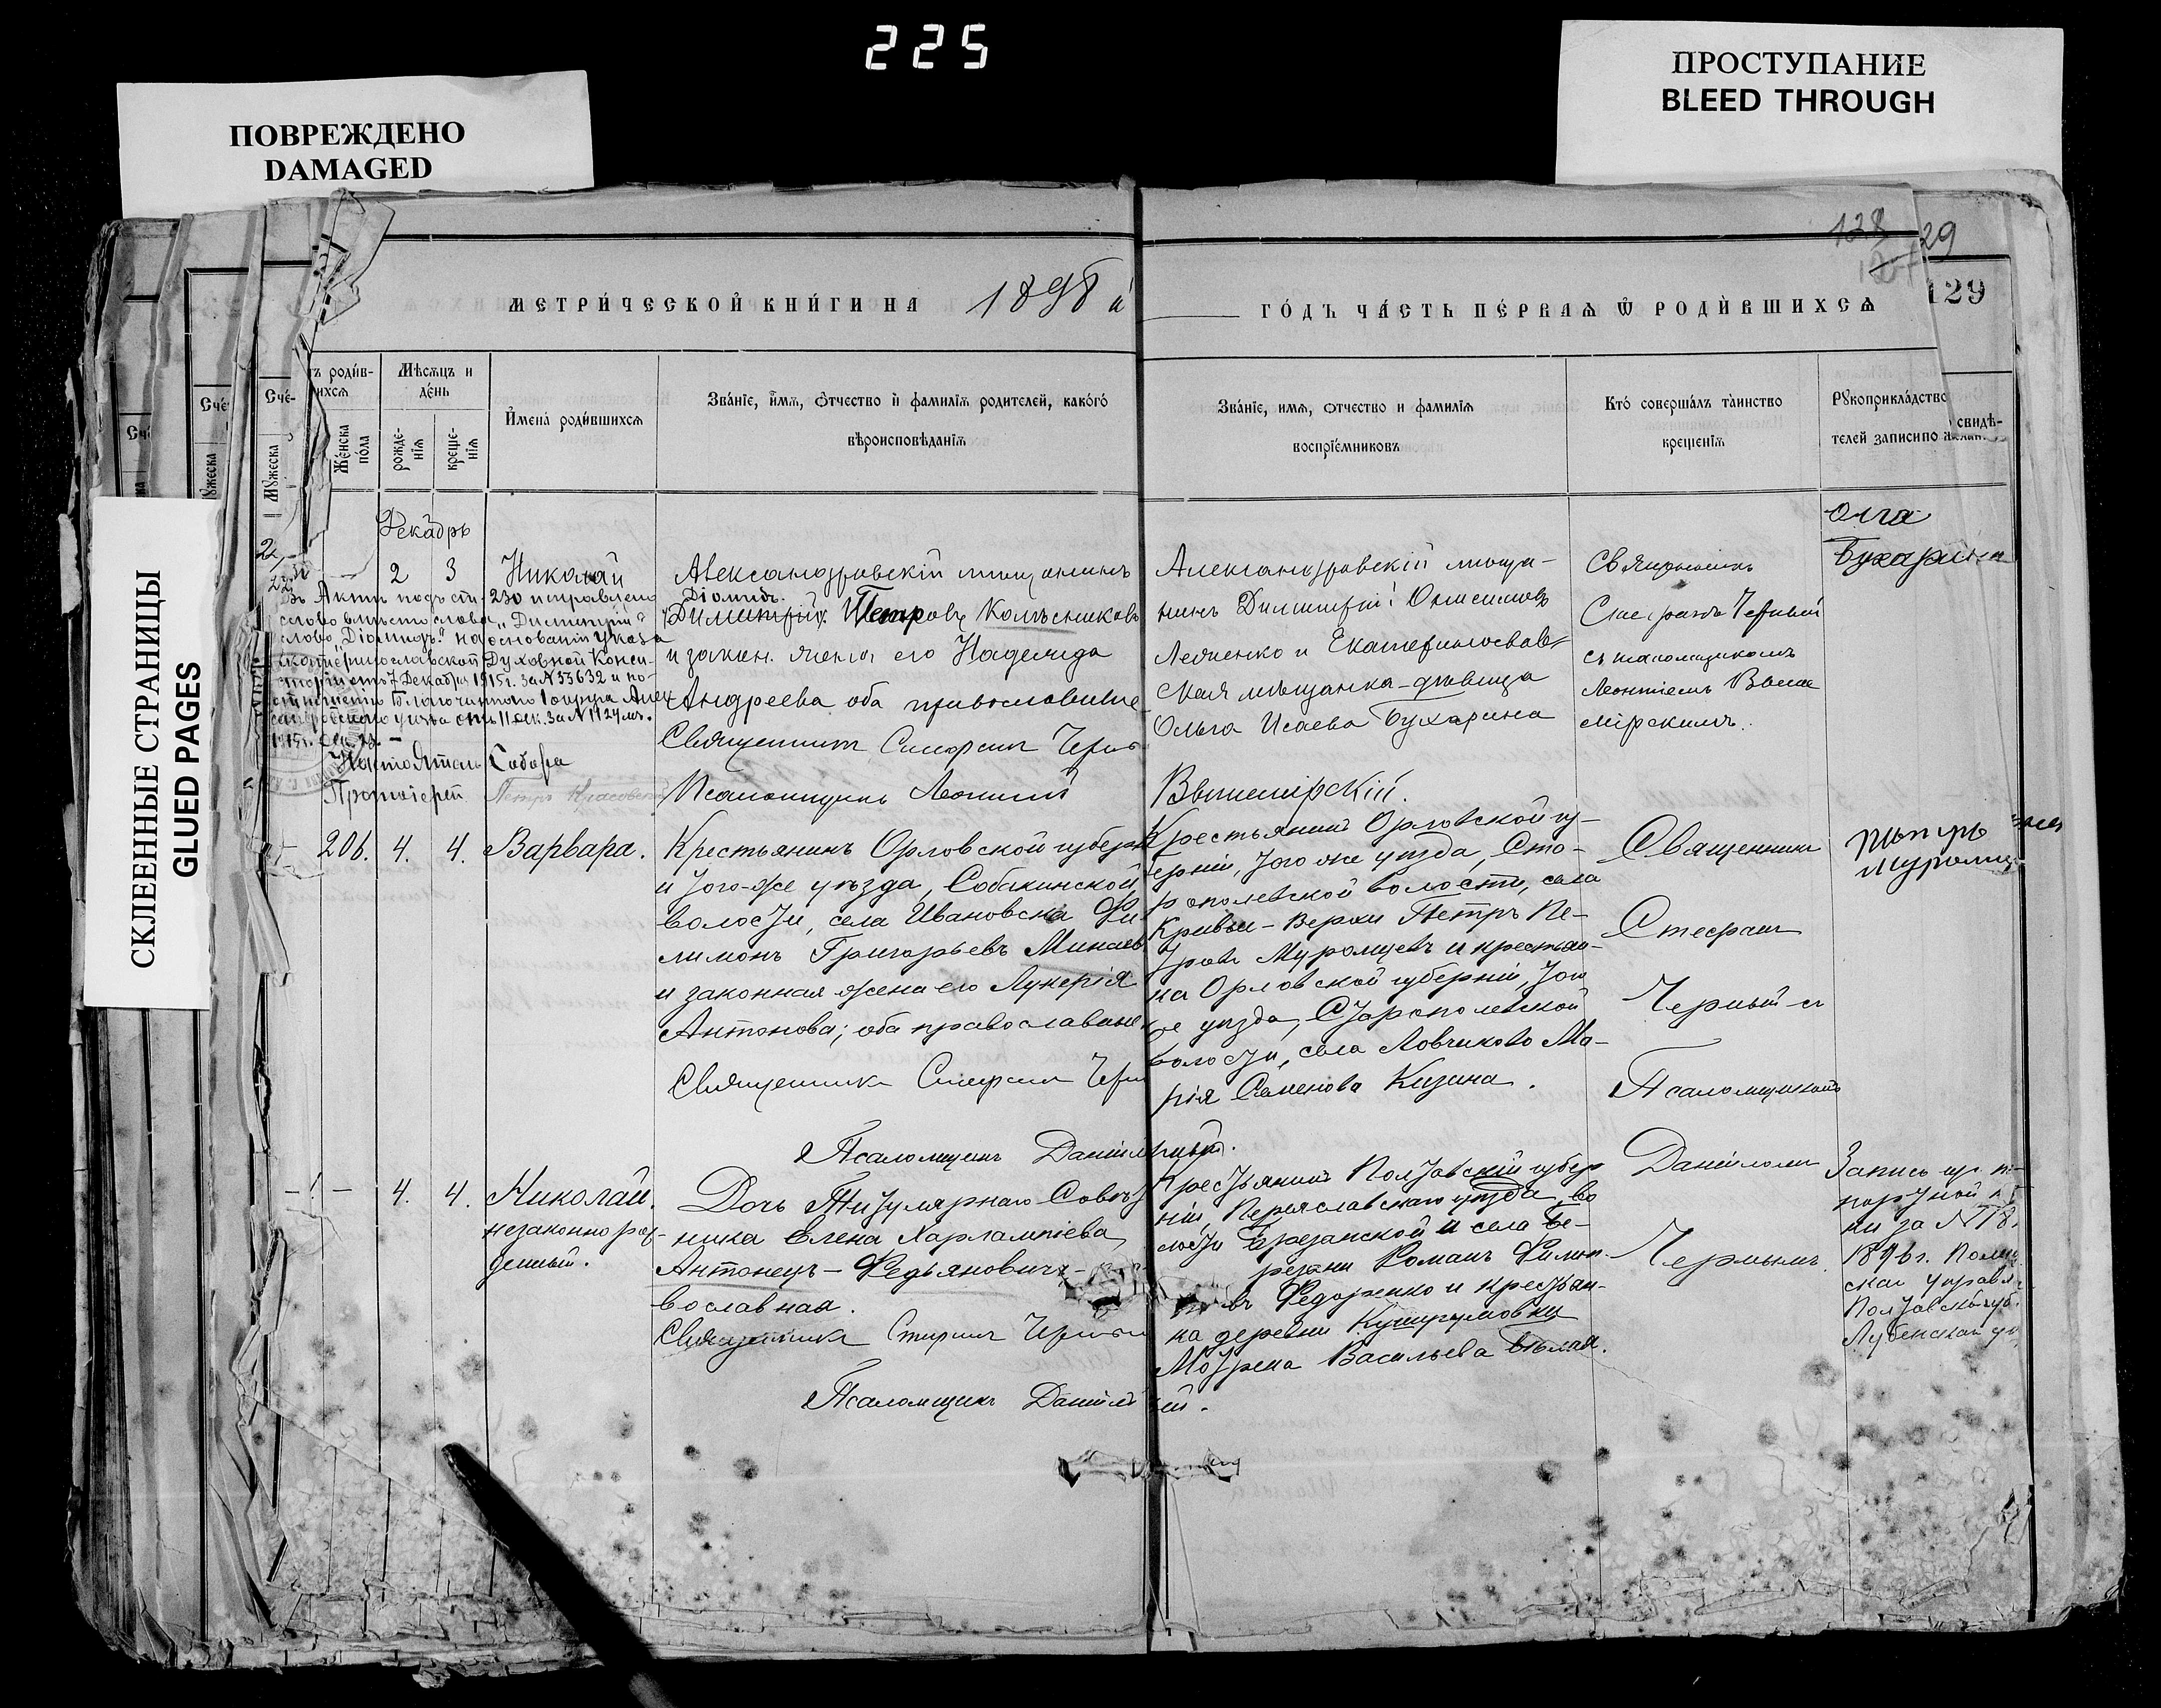 225
ПОВРЕЖДЕНО
DAMAGED
ПРОСТУПАНИЕ
BLEED THROUGH
СКЛЕЕННЫЕ СТРАНИЦЫ
GLUED PAGES
128
29
129
МЕТРИ́ЧЕСКОЙ КНИ́ГИ НА 1898 й
ГО́ДЪ ЧА́СТЬ ПЕ́РВАѦ Ѿ РОДИ́ВШИХСѦ
Сче-
Мꙋжеска
Же́нска по́ла
Мѣсѧцъ и де́нь
рожде-нїѧ
креще-нїѧ
И҆мена̀ роди́вшихсѧ
Зва́нїе, и҆́мѧ, ѻ҆́тчество и҆ фамилїѧ родителей, како́гѡ
вѣроисповѣданїѧ
Зва́нїе, имѧ, ѻтчество и фамилїѧ
воспрїе́мниковъ
Кто̀ соверша́лъ та́инство
креще́нїѧ
Рꙋкоприкла́дство свидѣ-
телей записи по
Декабрь
2 3 Николай
Александровскій мѣщанинъ
Діомидъ.
Димитрій Петровъ Колѣсниковъ
и закон. жена его Надежда
Андреева оба православные
Священникъ Стефанъ Черный
Псаломщикъ Леонтій Вышемірскій.
Александровскій мѣща-
нинъ Димитрій Онисимовъ
Леоненко и Екатеринослав-
ская мѣщанка-дѣвица
Ольга Исаева Бухарина
Священникъ
Стефанъ Черный
съ псаломщикомъ
Леонтіемъ Выше-
мірскимъ.
Ольга
Бухарина
Въ Актѣ подъ ст. 230 исправлено
слово вмѣсто слова „Димитрій"
слово „Діомидъ" на основаніи указа
Екатеринославской Духовной Конси-
сторіи отъ 7 Декабря 1915 г. за № 33632 и по-
Благочиннаго 1 округа Алек-
сандровскаго уѣзда отъ 11 дек. за № 1124
1915 г.
Настоятель Собора
Протоіерей
206. 4. 4. Варвара.
Крестьянинъ Орловской губерн
и того-же уѣзда, Собакинской
волости, села Ивановска Фи
лимонъ Григорьевъ Минаевъ
и законная жена его Лукерія
Антонова; оба православные
Священникъ Стефанъ Черный
Псаломщикъ Даніилъ
Крестьянинъ Орловской гу-
берніи, того же уѣзда, Ста-
ропольской волости, села
Кривы-Верхи Петръ Пе-
тровъ Муромцевъ и крестьян-
ка Орловской губерніи, того
же уѣзда, Старопольской
волости, села Ловчиково Ма-
рія Семенова Кизина.
Священникъ
Стефанъ
Черный съ
Псаломщикомъ
Даніиломъ
Чернымъ.
Петръ
Муромц
4. 4. Николай.
незаконно рож-
денный.
Дочь Титулярнаго Совѣт
ника Елена Харлампіева
Антонецъ-Федьяновичъ-
вославная.
Священникъ Стефанъ Черный
Псаломщикъ Даніилъ
Крестьянинъ Полтавской губер
ніи, Переяславскаго уѣзда, во
лости Березанской и села Бе-
резани Романъ Филип-
въ Федоренко и крестьян-
ка деревни Кушугумовки
Мотрена Васильева Бѣлая.
Запись
за № 18.
1896 г.
ская управ
Полтавск. губ.
Лубенскаго